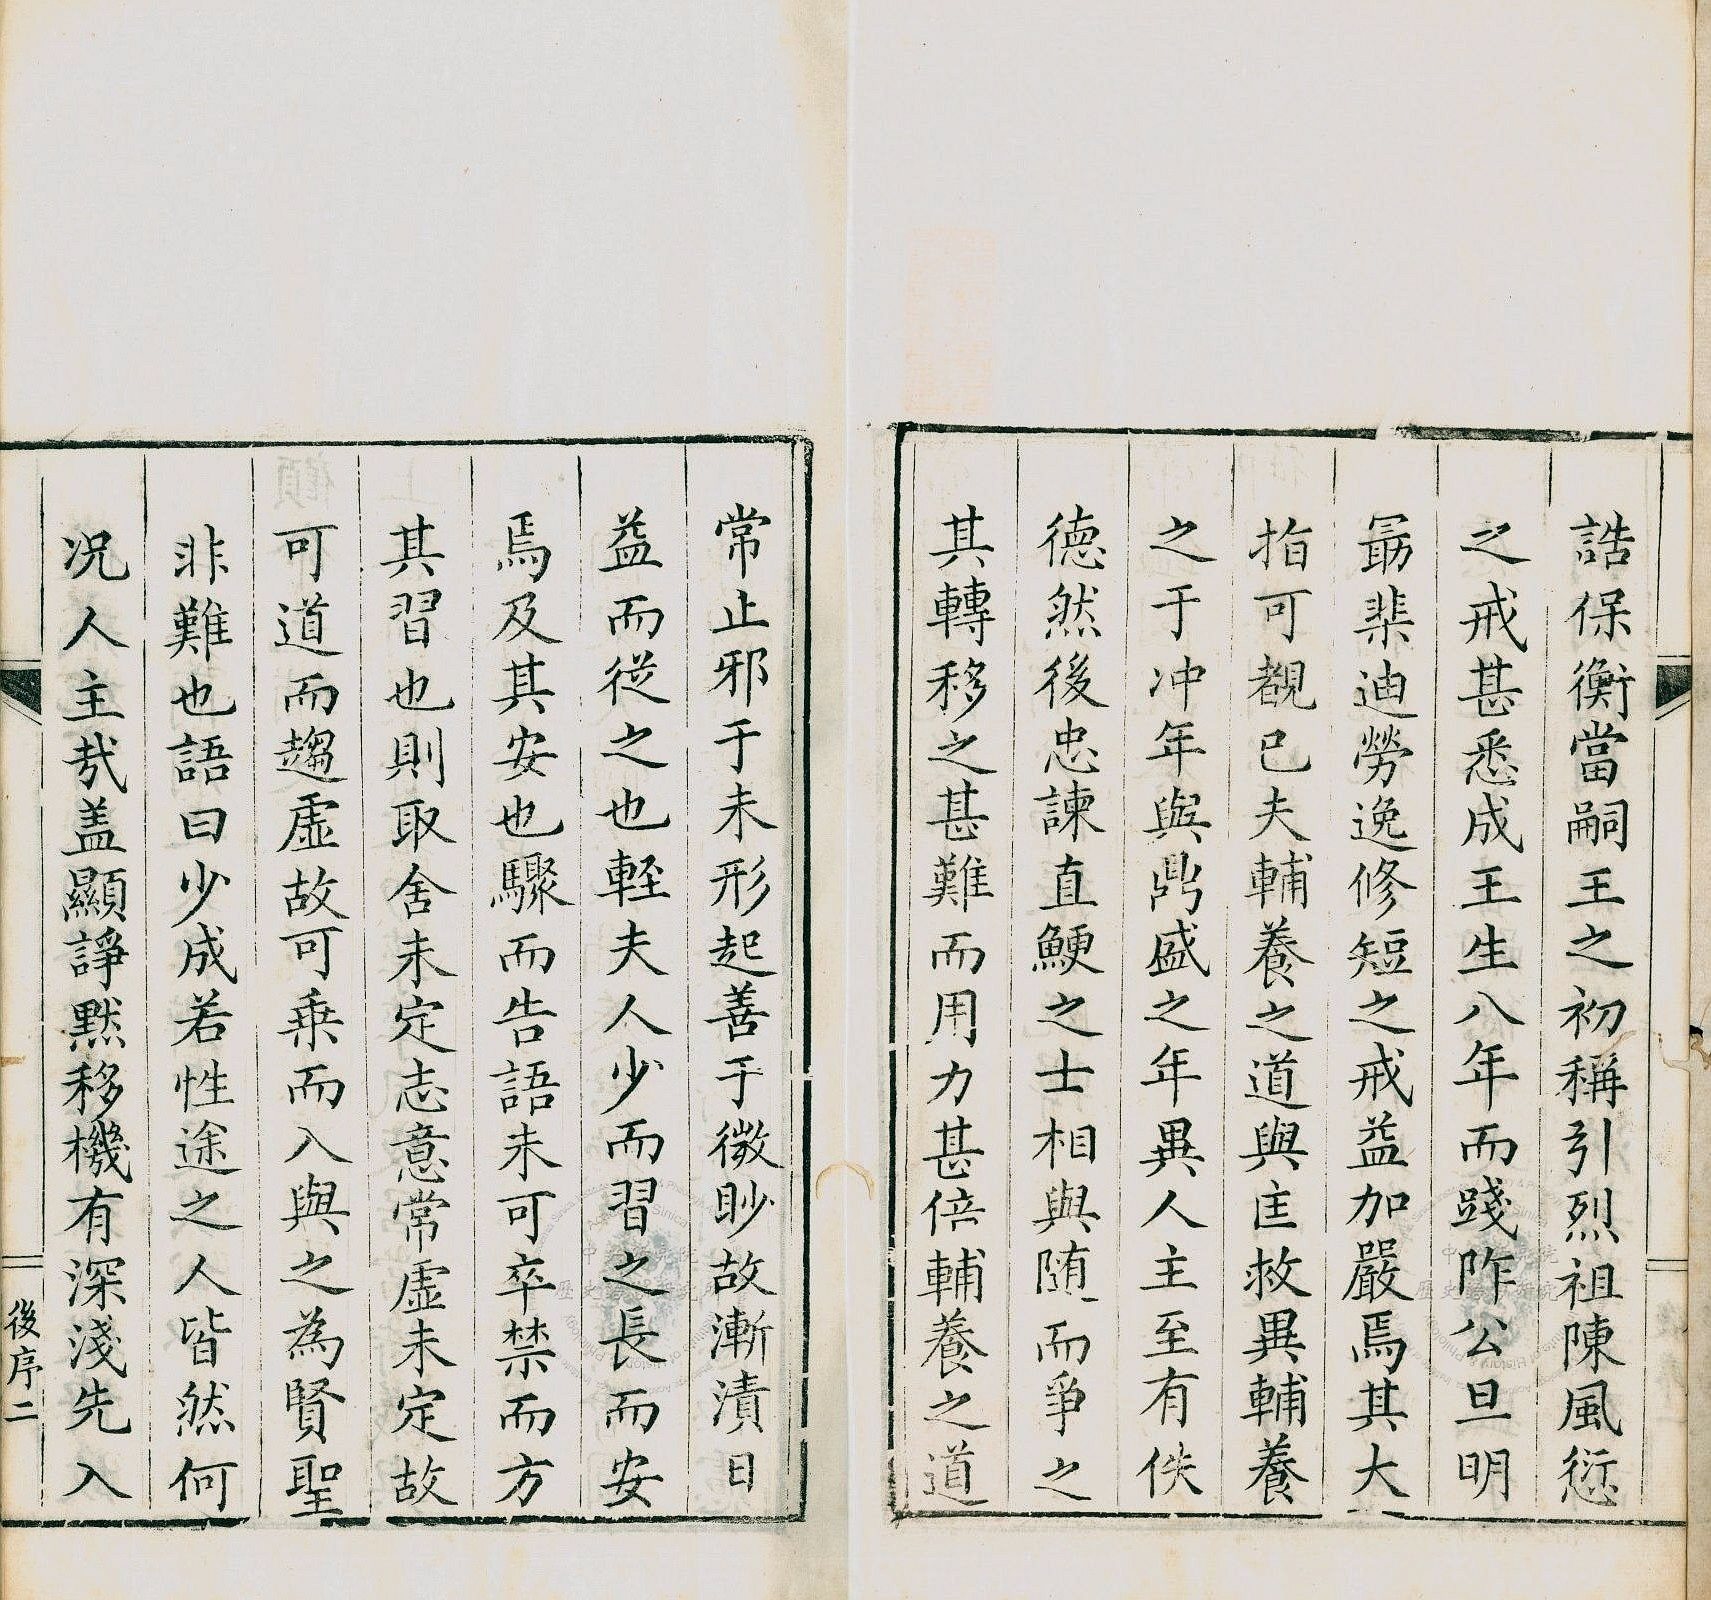 誥保衡當嗣王之初稱引烈祖陳風愆
之戒甚悉成王生八年而踐阼公旦明
勗棐迪勞逸修短之戒益加嚴焉其大
指可覩已夫輔養之道與匡救異輔養
之于冲年與鼎盛之年異人主至有佚
德然後忠諫直鯁之士相與随而爭之
其轉移之甚難而用力甚倍輔養之道
常止邪于未形起善于微眇故漸漬日
益而從之也輕夫人少而習之長而安
焉及其安也驟而告語未可卒禁而方
其習也則取舍未定志意常虛未定故
可道而趨虛故可乗而入與之為賢聖
非難也語曰少成若性途之人皆然何
况人主㦲盖顯諍黙移機有深淺先入
後序二